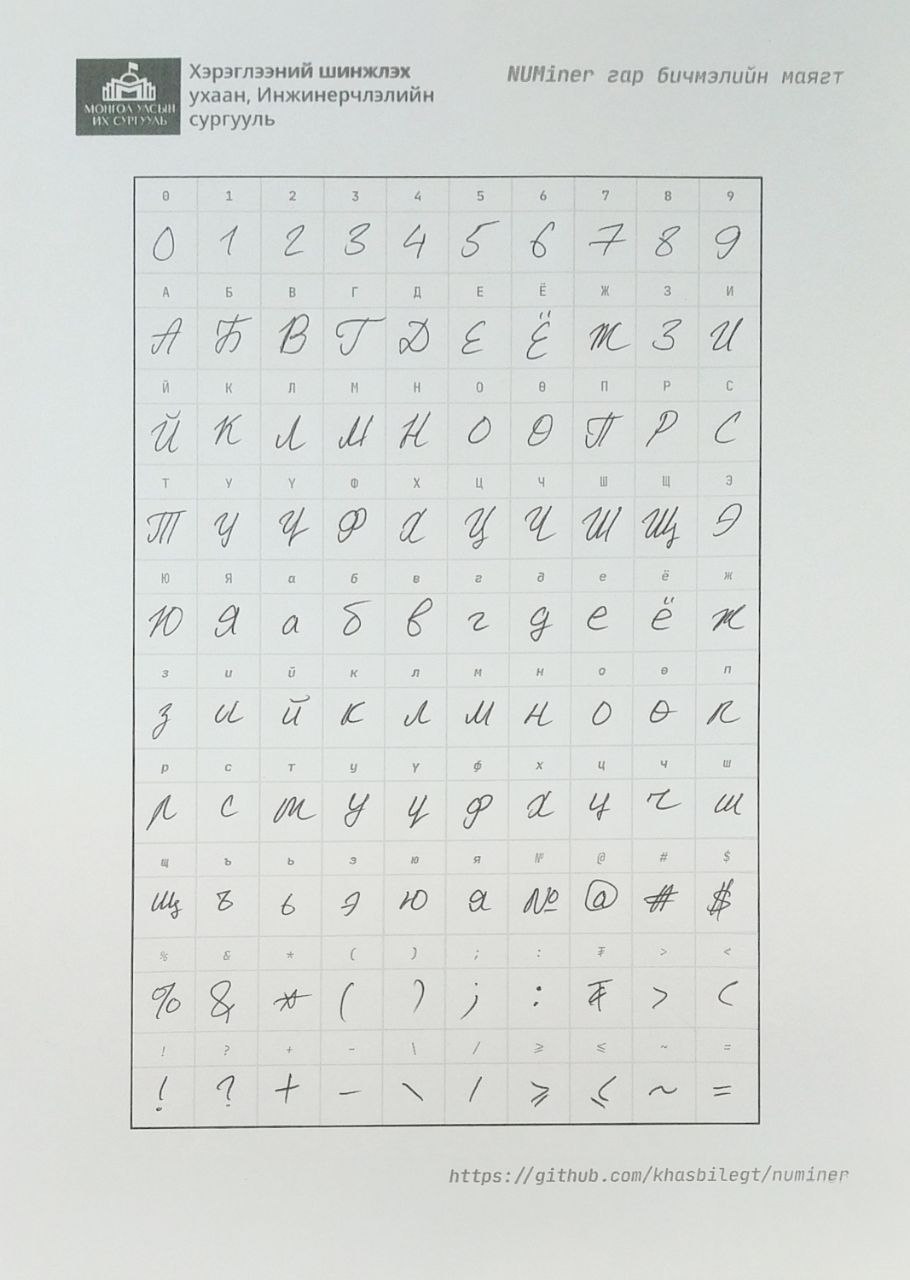 МОНГОЛ УЛСЫН
ИХ СУРГУУЛЬ
Хэрэглээний шинжлэх
ухаан, Инжинерчлэлийн
сургууль
NUMiner гар бичмэлийн маягт
0 1 2 3 4 5 6 7 8 9
0 1 2 3 4 5 6 7 8 9
А Б В Г Д Е Ё Ж З И
А Б В Г Д Е Ё Ж З И
Й К Л М Н О Ө П Р С
Й К Л М Н О Ө П Р С
Т У Ү Ф Х Ц Ч Ш Щ Э
Т У Ү Ф Х Ц Ч Ш Щ Э
Ю Я а б в г д е ё ж
Ю Я а б в г д е ё ж
з и й к л м н о ө п
з и й к л м н о ө п
р с т у ү ф х ц ч ш
р с т у ү ф х ц ч ш
щ ъ ь э ю я № @ # $
щ ъ ь э ю я № @ # $
% & * ( ) ; : ₮ > <
% & * ( ) ; : ₮ > <
! ? + - \ / ⩾ ⩽ ~ =
! ? + - \ / ⩾ ⩽ ~ =
https://github.com/khasbilegt/numiner